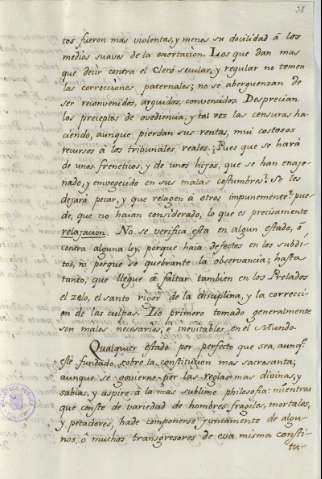 38
tos fueron mas violentas, y menos su docilidad á los
medios suaves de la exortacion. Los que dan mas
que decir contra el Clero secular, y regular no temen
las correcciones paternales; no se aberguenzan de
ser reconvenidos, arguidos, convencidos. Desprecian
los preceptos de ovediencia, y tal vez las censuras ha-
ciendo, aunque pierdan sus rentas, mui costosos
recursos á los tribunales reales. ¿Pues que se hará
de unos freneticos, y de unos hijos, que se han enaje-
nado, y envegecido en sus malas costumbres? Se les
dejará pecar, y que relagen á otros impunemente? pue-
de, que no hayan considerado, lo que es precisamente
relajacion. No se verifica esta en algun estado, ó
contra alguna ley, porque haia defectos en los subdi-
tos, ni porque se quebrante la observancia; hasta
tanto, que llegue á faltar tambien en los Prelados
el zelo, el santo rigor de la disciplina, y la correcci-
on de las culpas. Lo primero tomado generalmente
son males necesarios, é inevitables en el Mundo
Qualquier estado por perfecto que sea, aunq.
esté fundado sobre la constitucion mas sacrosanta;
aunque se govierne por las reglas mas divinas, y
sabias, y aspire á la mas sublime philosofia: mientras
que conste de variedad de hombres fragiles, mortales,
y pecadores, hade componerse juntamente de algu-
nos, ó muchos transgresores de esa misma consti-
tu-